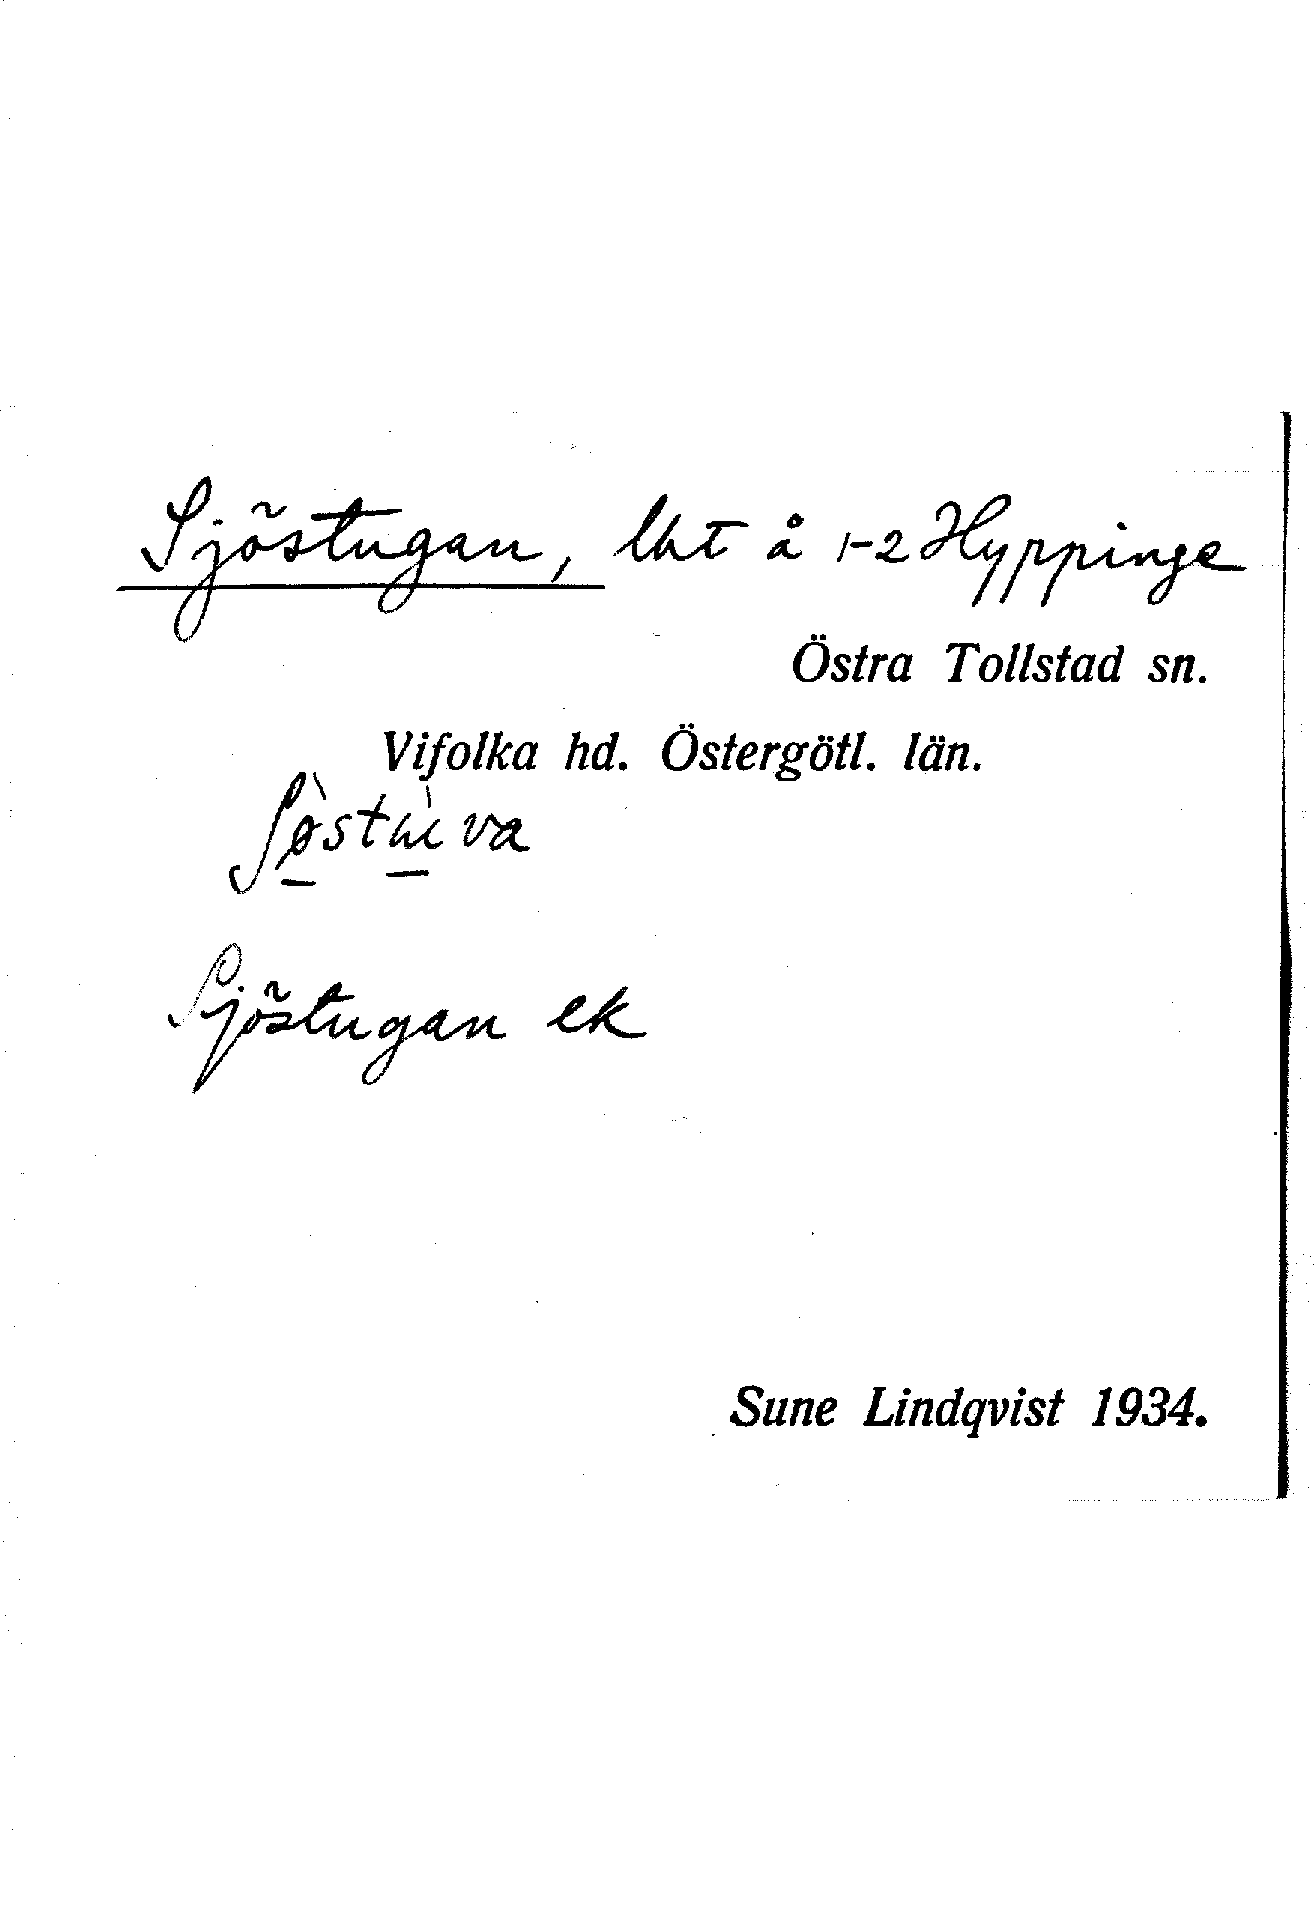 Sjöstugan, lht å 1-2 Hyppinge
Östra Tollstad sn.
Vifolka hd. Östergötl. län.
Sjöstugan ek
Sune Lindqvist 1934.